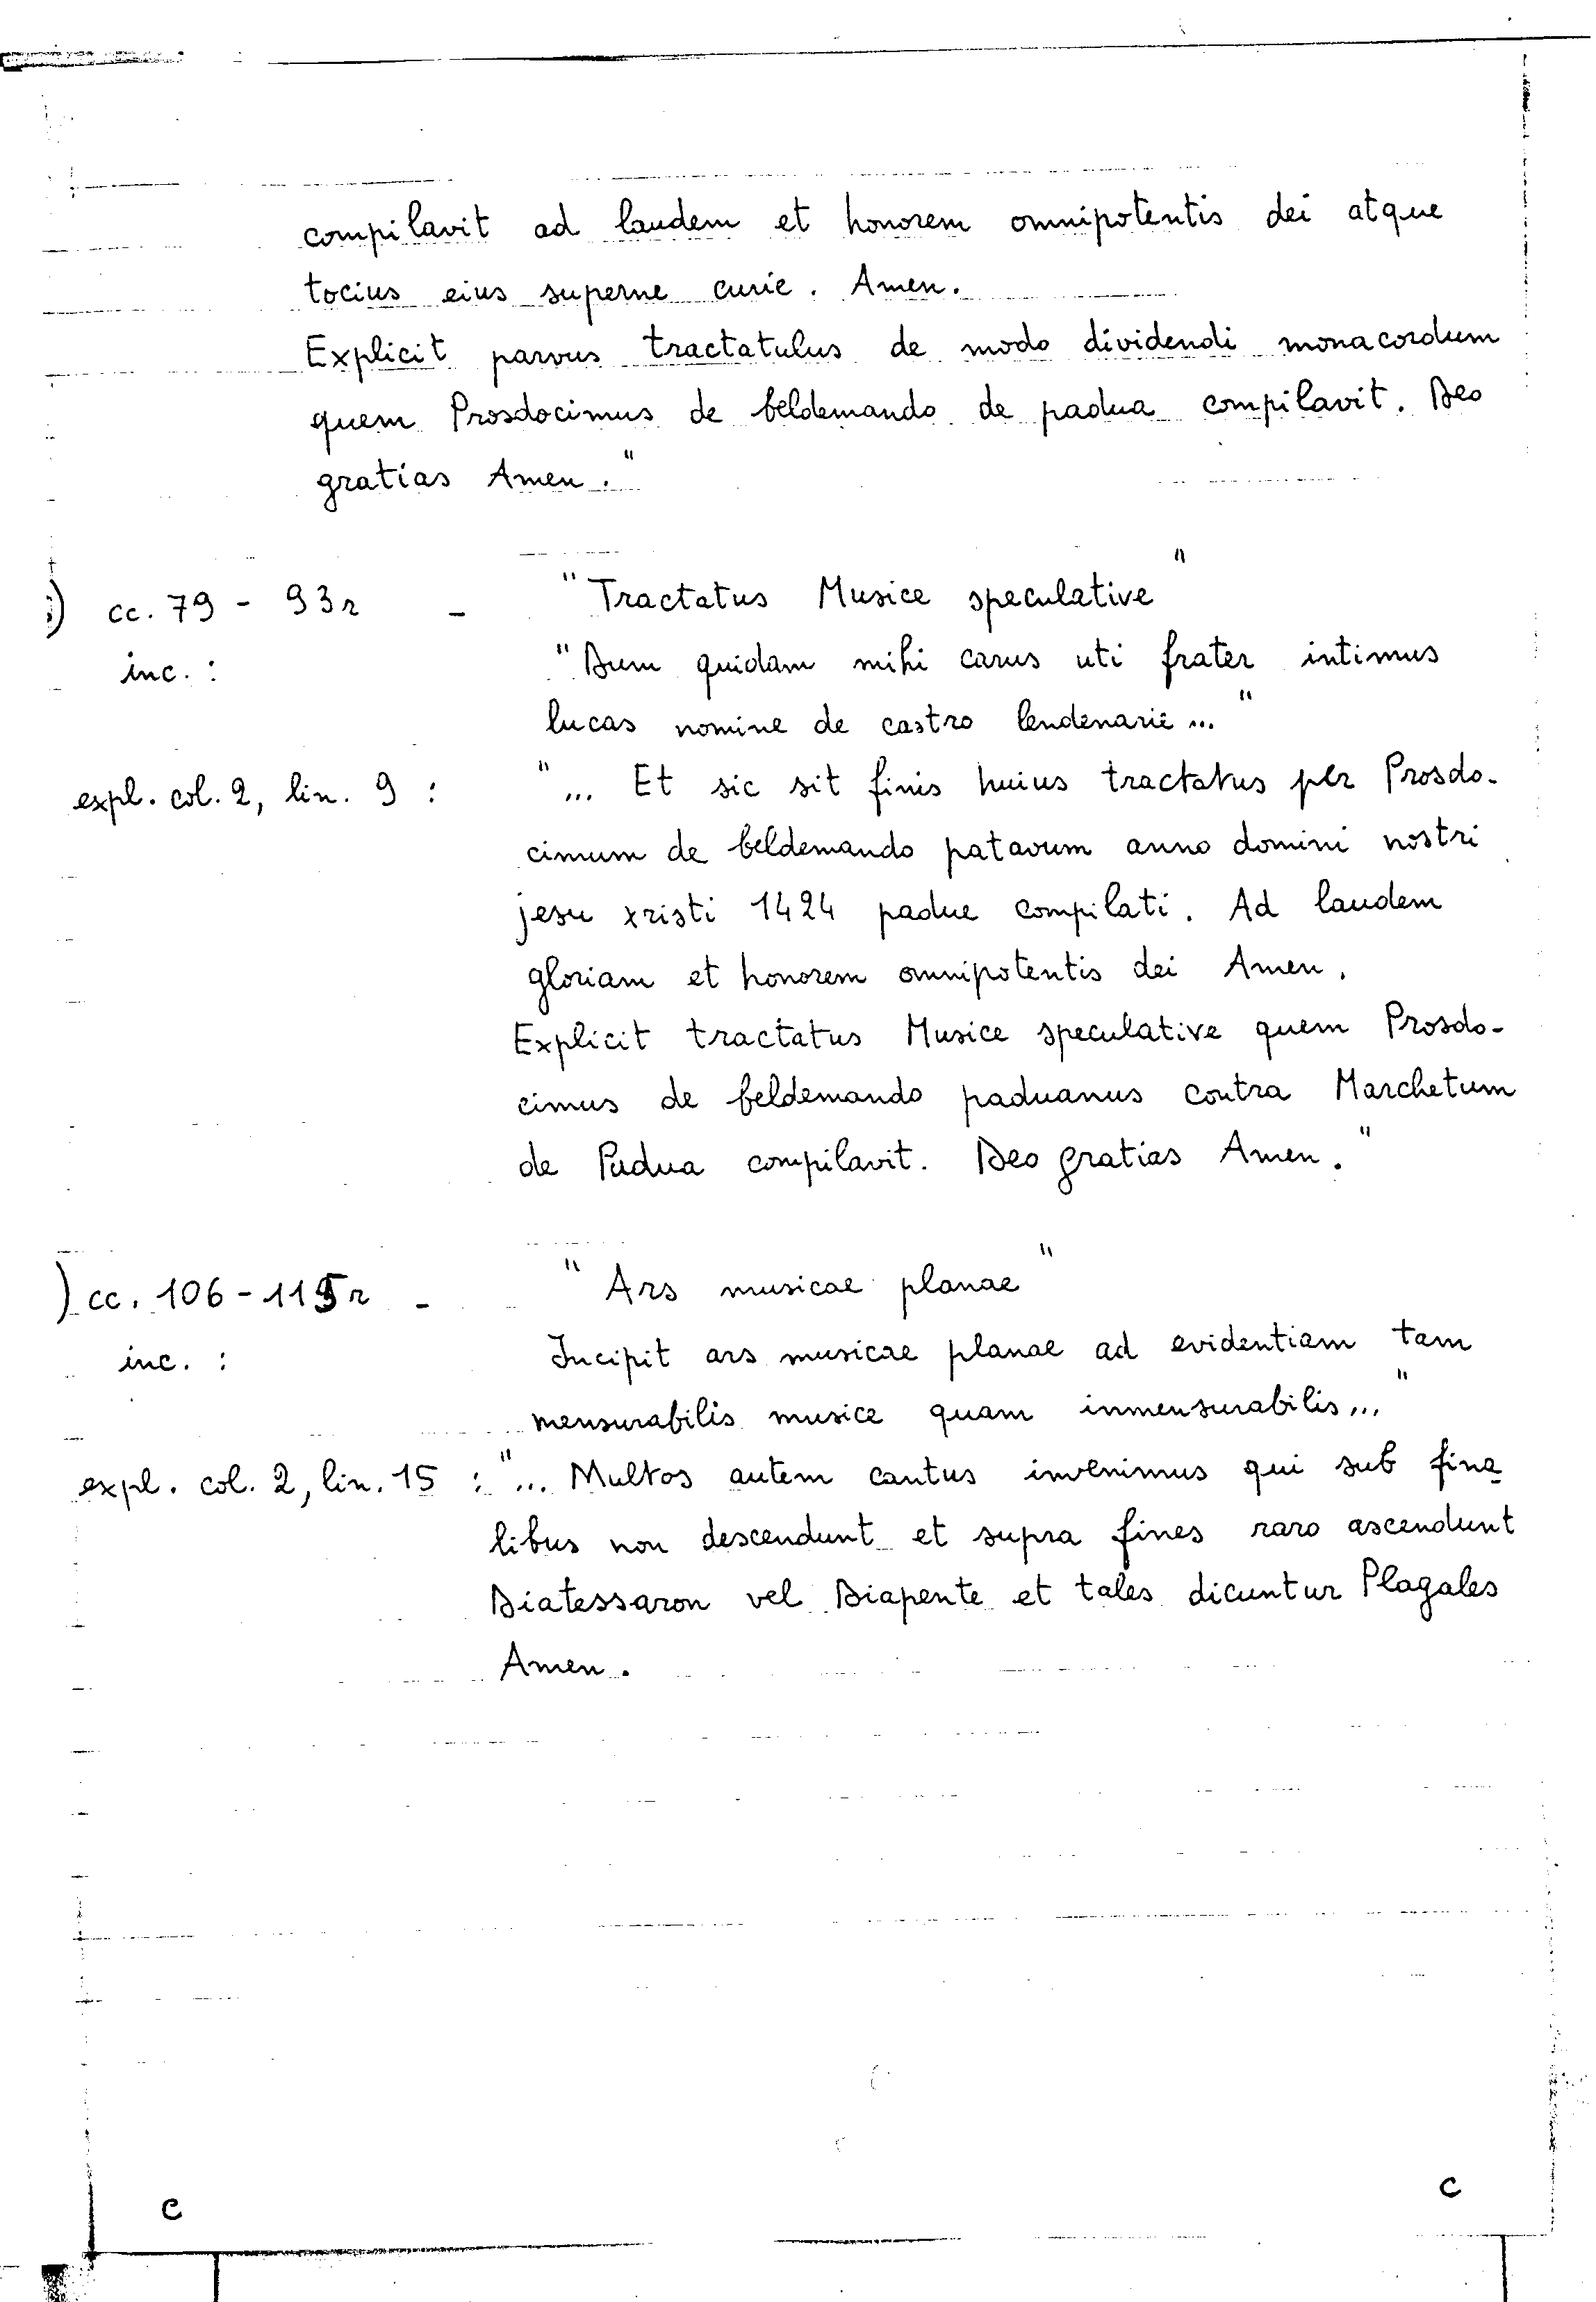 compilavit ad laudem et honorem omnipotentis dei atque
tocius eius superne curie. Amen.
Explicit parvus tractatulus de modo dividendi monacordum
quem Prosdocimus de beldemando de padua compilavit. Deo
gratias Amen."
i) cc. 79 - 93r - "Tractatus Musice speculative"
inc. : "Dum quidam mihi carus uti frater intimus
lucas nomine de castro lendenarie..."
expl. col. 2, lin. 9 : "... Et sic sit finis huius tractatus per Prosdo-
cimum de beldemando patavum anno domini nostri
jesu xristi 1424 padue compilati. Ad laudem
gloriam et honorem omnipotentis dei Amen.
Explicit tractatus Musice speculative quem Prosdo-
cimus de beldemando paduanus contra Marchetum
de Padua compilavit. Deo gratias Amen."
) cc. 106 - 115r - "Ars musicae planae"
inc. : Incipit ars musicae planae ad evidentiam tam
mensurabilis musice quam inmensurabilis..."
expl. col. 2, lin. 15 : "... Multos autem cantus invenimus qui sub fina
libus non descendunt et supra fines raro ascendunt
Diatessaron vel Diapente et tales dicuntur Plagales
Amen.
C C